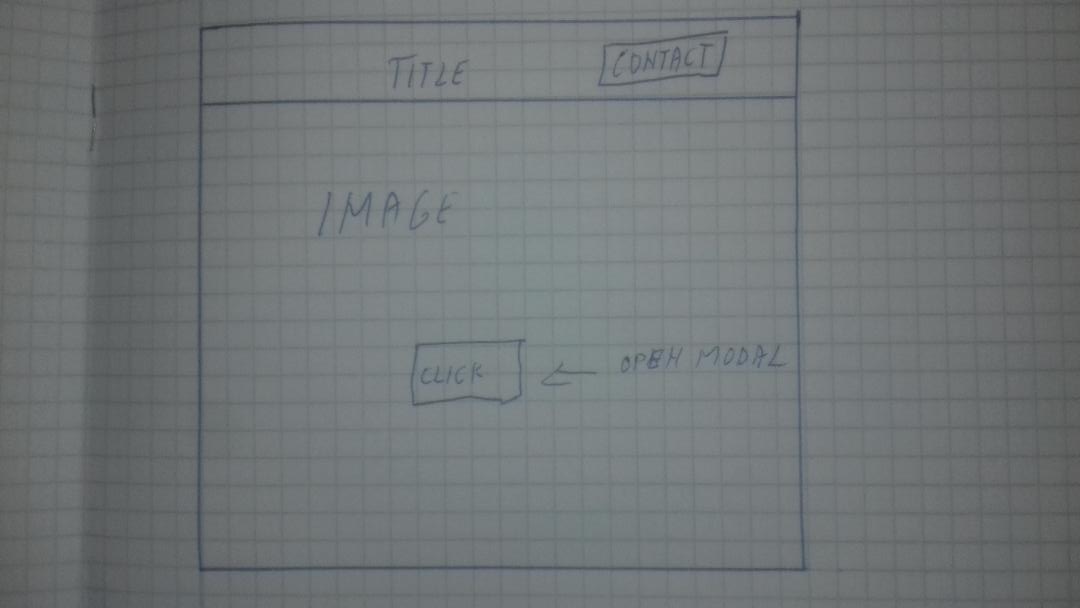 TITLE
CONTACT
IMAGE
CLICK
OPEN MODAL